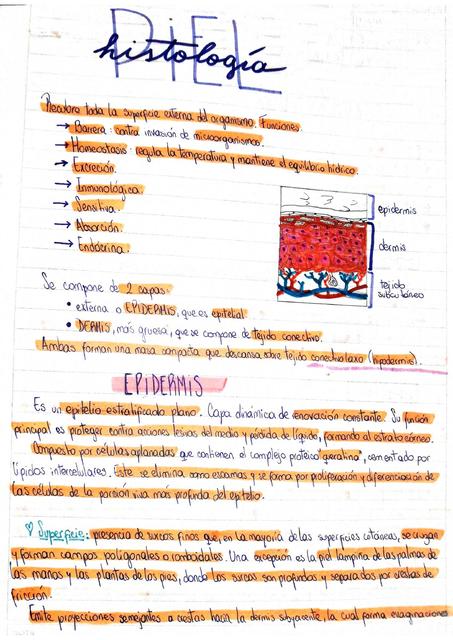 PIEL
histología
Recubre toda la superficie externa del organismo. Funciones.
→ Barrera: contra invasión de microorganismos.
→ Homeostasis: regula la temperatura y mantiene el equilibrio hídrico.
→ Excreción.
→ Inmunológica.
→ Sensitiva.
→ Absorción.
→ Endócrina.
epidermis
dermis
tejido
subcutáneo
Se compone de 2 capas:
• externa o EPIDERMIS, que es epitelial
• DERMIS, más gruesa, que se compone de tejido conectivo.
Ambas forman una masa compacta que descansa sobre tejido conectivo laxo (hipodermis).
EPIDERMIS
Es un epitelio estratificado plano. Capa dinámica de renovación constante. Su función
principal es proteger contra acciones lesivas del medio y pérdida de líquido, formando al estrato córneo.
Compuesto por células aplanadas que contienen el complejo proteico "queratina", cementado por
lípidos intercelulares. Este se elimina como escamas y se forma por proliferación y diferenciación de
las células de la porción viva más profunda del epitelio.
♡ Superficie: presencia de surcos finos que, en la mayoría de las superficies cutáneas, se cruzan
y forman campos poligonales o romboidales. Una excepción es la piel lampiña de las palmas de
las manos y las plantas de los pies, donde los surcos son profundos y separados por crestas de
fricción.
Emite proyecciones semejantes a crestas hacia la dermis subyacente, la cual forma evaginaciones